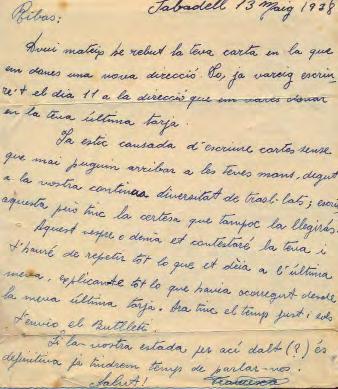 Sabadell 13 Maig 1938
Ribas:
Avui mateix he rebut la teva carta en la que
em dones una nova direcció. Jo, ja vareig escriu-
re't el dia 11 a la direcció que em vares donar
en la teva última tarja.
Ja estic cansada d'escriure cartes sense
que mai puguin arribar a les teves mans, degut
a la vostra continua diversitat de trasl·lats; escric
aquesta però tinc la certesa que tampoc la llegiràs.
Aquest vespre o demà et contestaré la teva i
t'hauré de repetir tot lo que et dèia a l'última
meva, explicante tot lo que havia ocorregut desde
la meva última tarja. Ara tinc el temps just i sols
t'envio el Butlletí.
Si la vostra estada per ací dalt (?) és
definitiva ja tindrem temps de parlar-nos.
Salut! Francisca